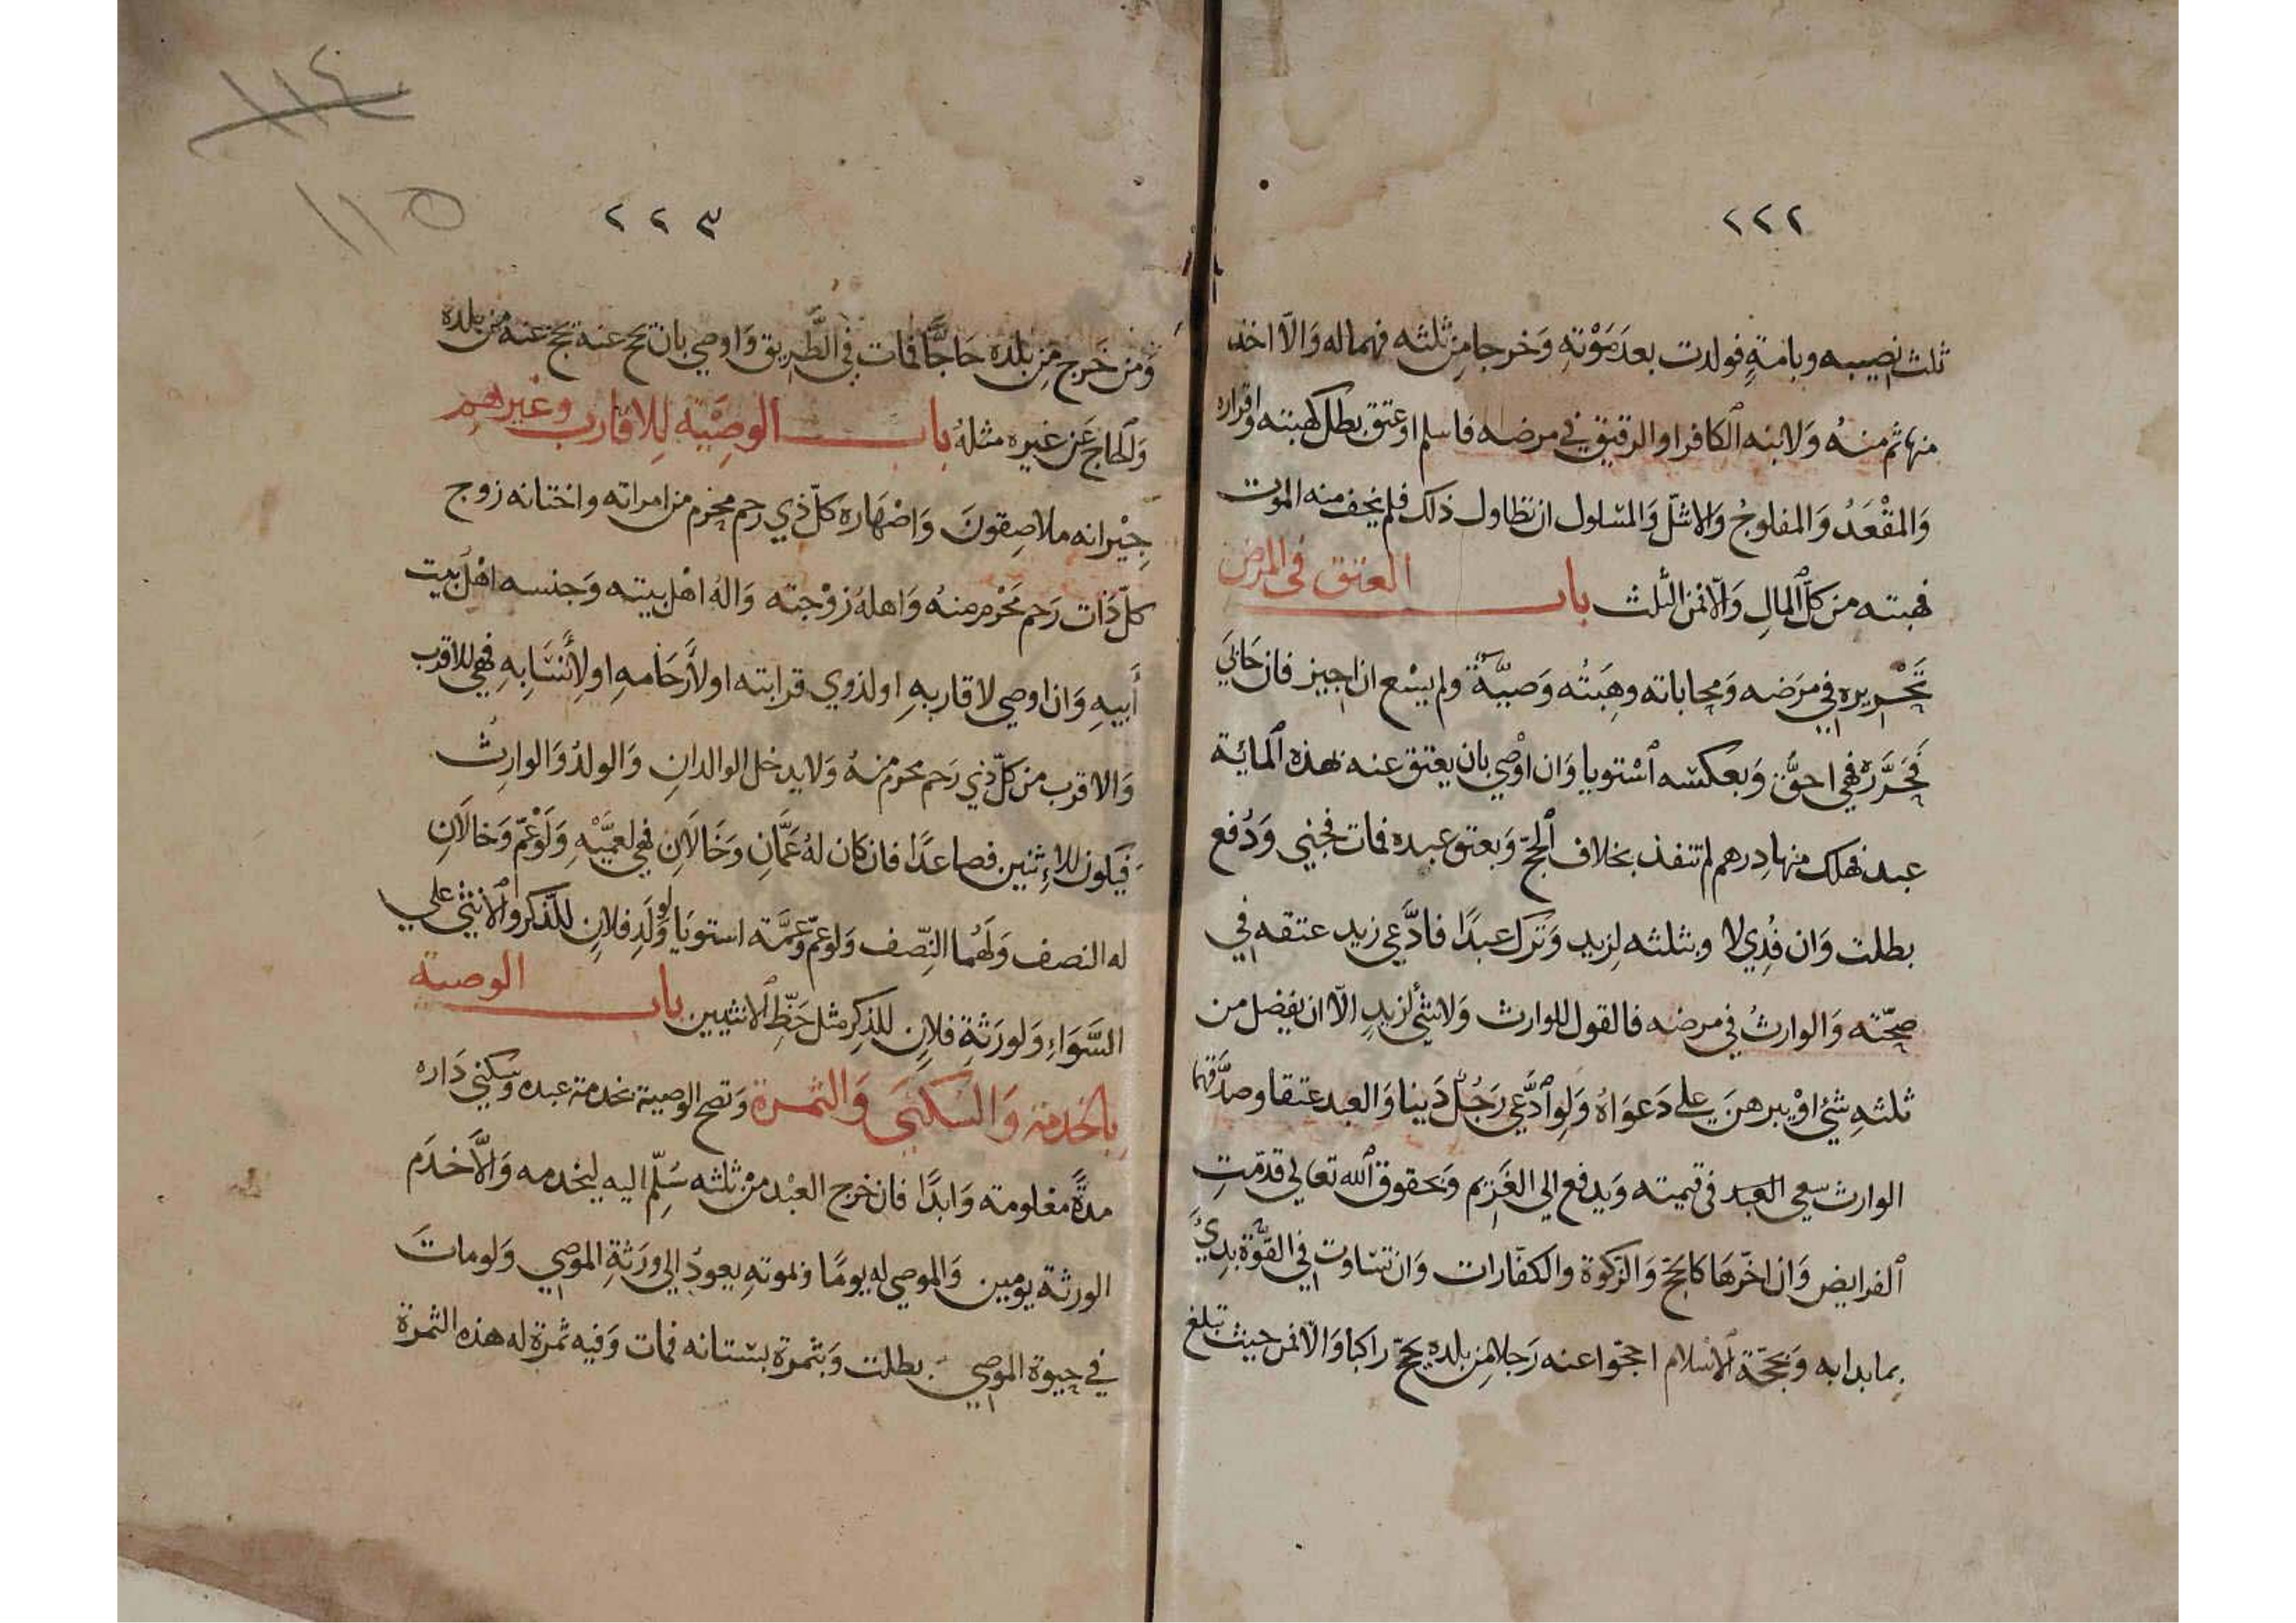 ٢٢٢
ثلث نصيبه وبامةٍ فولدت بعدَ مَوْتهِ وَخرجا مِن ثلثه فهما له وَالّا اخذ
منها ثم منهُ وَلابنه الكافر او الرقيق في مرضه فاسلم اوعتق بطل كهبته واقراره
وَالمقْعَدُ وَالمفلوجُ وَالاشلّ وَالمسلول ان تطاول ذلك فلم يخف منه الموت
فهبته من كلّ المالِ وَالّا فمن الثلث باب العتق في المرض
تَحْريره في مرَضه وَمحاباته وهِبَتُه وَصيّةٌ ولم يسْع ان اجيز فان حَابَى
فَحَرَّرَه فهي احقُّ وَبعكسه اسْتويا وَان اوْصي بان يعتق عنه بهذه المائة
عبد فهلك منها دِرهم لم تنفذ بخلاف الحجّ وَبعتق عبده فمات فجني وَدُفع
بطلت وَان فُدِي لا وبثلثه لِزيد وَتركَ عبدًا فادَّعي زيد عتقه في
صحّته وَالوارثُ في مرضه فالقول للوارث وَلاشئَ لزيدٍ الّا ان يفضل من
ثلثهِ شئ اوْ يبرهنَ علي دَعوَاهُ وَلو ادَّعي رَجُلٌ دَينا وَالعبد عتقا وصدَّقهما
الوارث سعي العبد في قيمته وَيدفع الي الغَرِيم وَبحقوق الله تعالي قدّمتِ
الفرايض وَان اخّرهَا كالحجّ وَالزكوة والكفّارات وَان تساوت في القوّة بدِئَ
بما بدا به وَبحَجّة الاسْلام احجّوا عنه رَجلا مِن بلده يحجّ راكبا وَالّا فمن حيث تبلغ
١١٤
١١٥
٢٢٣
وَمن خَرج مِن بلده حَاجًّا فمات في الطَّريق وَاوصي بان يحج عنه يحج عنه من بلده
وَالحاج عَن غيره مثلهُ باب الوصيّة للاقارب وغيرهم
جِيْرانه ملاصِقوهُ وَاصْهَاره كلّ ذي رحم محرم من امراته واختانه زوج
كلّ ذَات رَحم مَحْرم منهُ وَاهلهُ زوْجته وَالُه اهْل بيته وَجنسه اهْل بيت
أَبيهِ وَان اوصي لاقاربهِ اولذوي قرابته اولأرْحَامهِ اولأنْسَابهِ فهي للاقرب
وَالاقرب من كلّ ذي رَحم محرم منهُ وَلايدخل الوالدانِ وَالولدُ وَالوارِثُ
فيَكون للاِثنين فصاعدًا فان كان لهُ عَمَّانِ وَخَالَانِ فهي لعمَّيْهِ وَلَوْ عَمّ وَخالَانِ
له النصف وَلَهُما النِّصف وَلو عمّ وَعَمَّة استوَيا وَلولَدِ فلانٍ للذّكر وَالانثي علي
السَّوَاءِ وَلورَثةِ فلانٍ للذكِر مثل حَظّ الانثيين باب الوصية
بالخدمة وَالسكنَى وَالثمرة وَتصح الوصية بخدمة عبده وَسكني دَاره
مدةً معْلومة وَابدًا فان خرج العبْد منْ ثلثه سُلِّم اليه ليخدمه وَالّاخدَم
الورثة يومين وَالموصي له يومًا وبموتهِ يعودُ الي وَرَثةِ الموصي وَلومات
في حيوة الموصي بطلت وَبثمرة بستانه فمات وَفيه ثمرة له هذه الثمرة